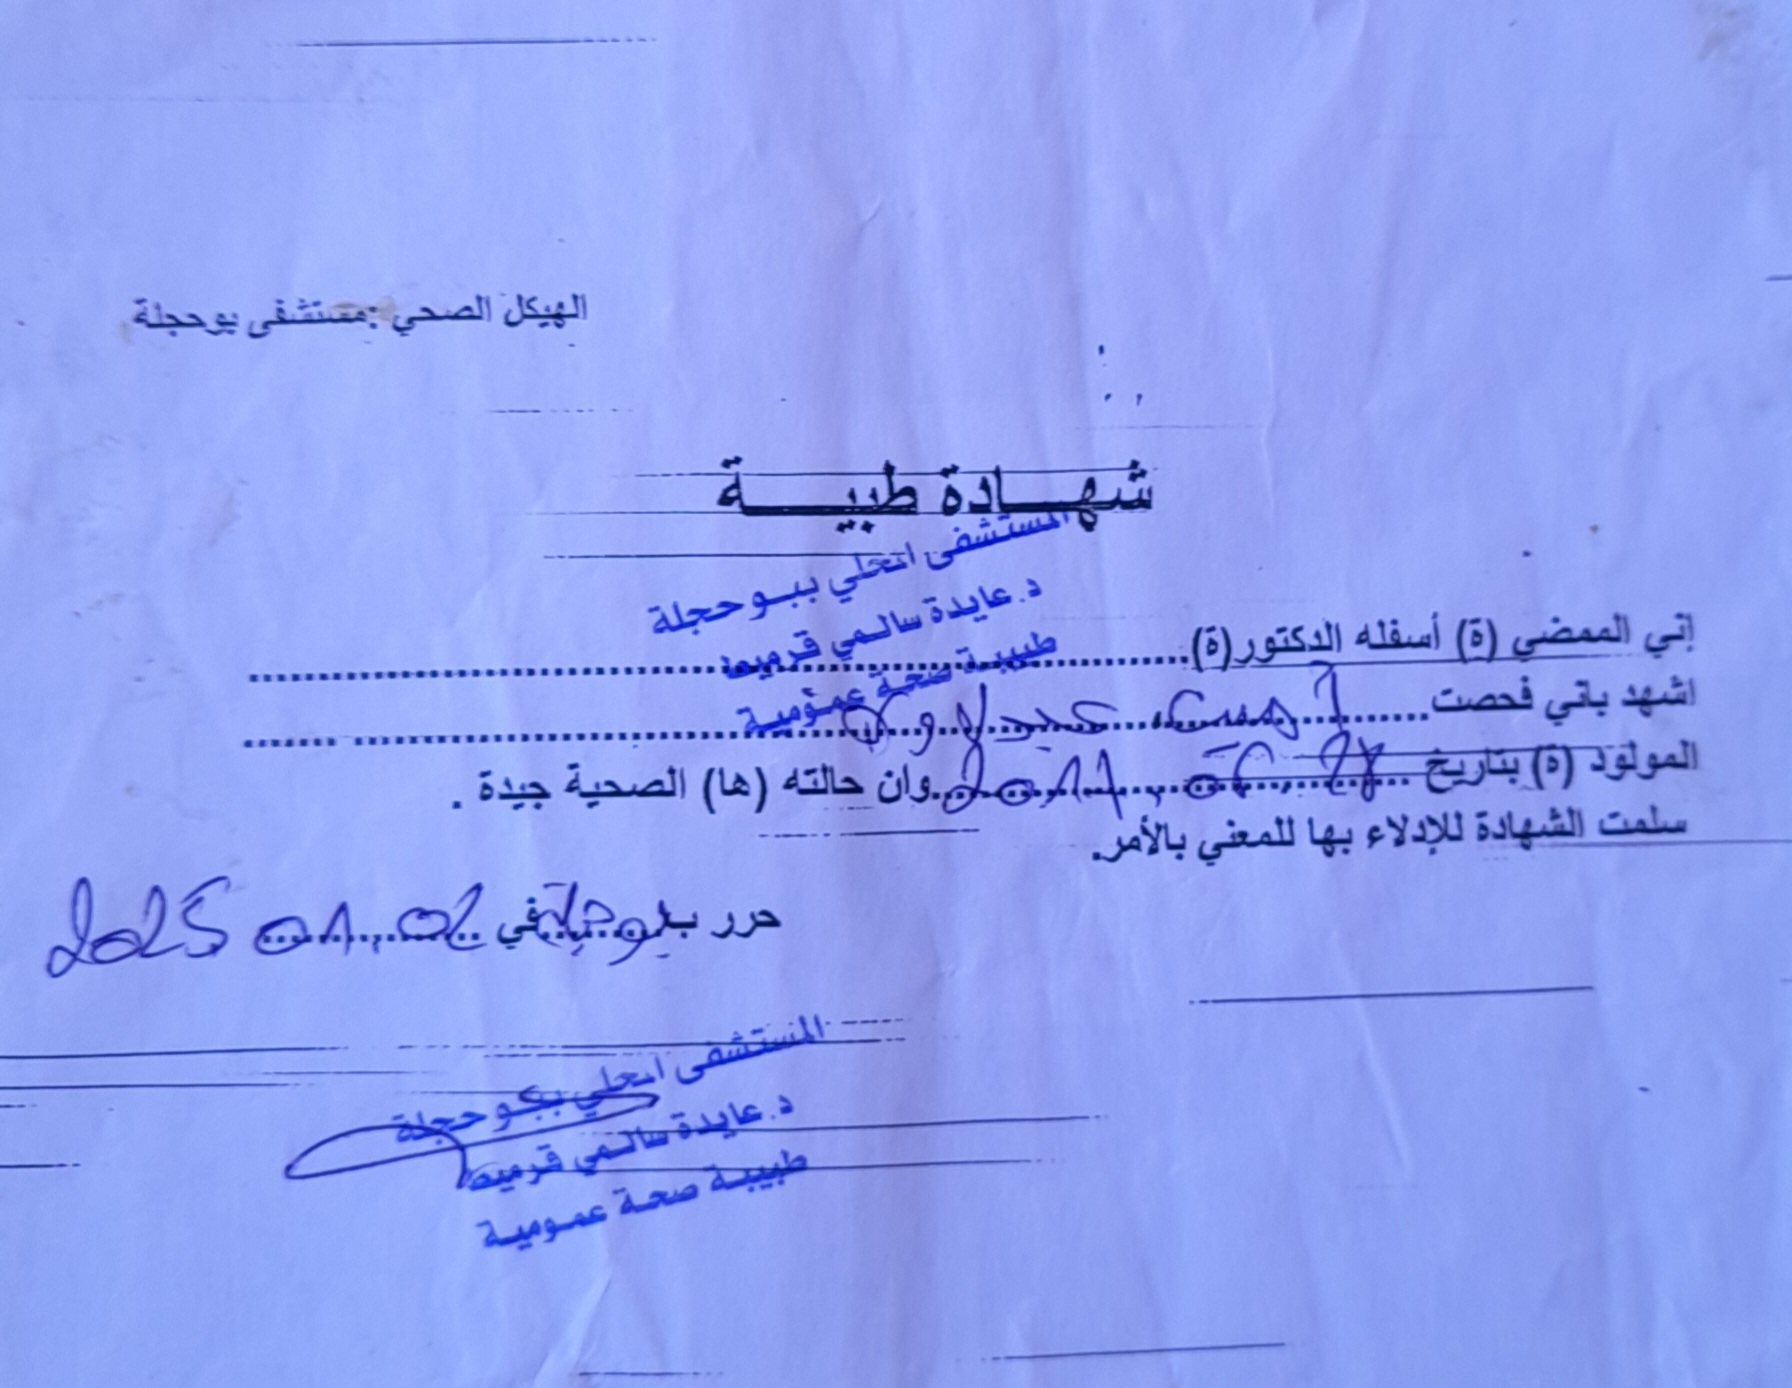 الهيكل الصحي :مستشفى بوحجلة
شهـــادة طبيـــــة
المستشفى المحلي ببـوحجلة
د.عايدة سالـمي قرميط
طبيبـة صحـة عمـومية
إني الممضي (ة) أسفله الدكتور(ة)
اشهد باني فحصت
المولود (ة) بتاريخ وان حالته (ها) الصحية جيدة .
سلمت الشهادة للإدلاء بها للمعني بالأمر.
حرر بـ بوحجلة في 02 01 2025
المستشفى المحلي ببـوحجلة
د.عايدة سالـمي قرميط
طبيبـة صحـة عمـومية